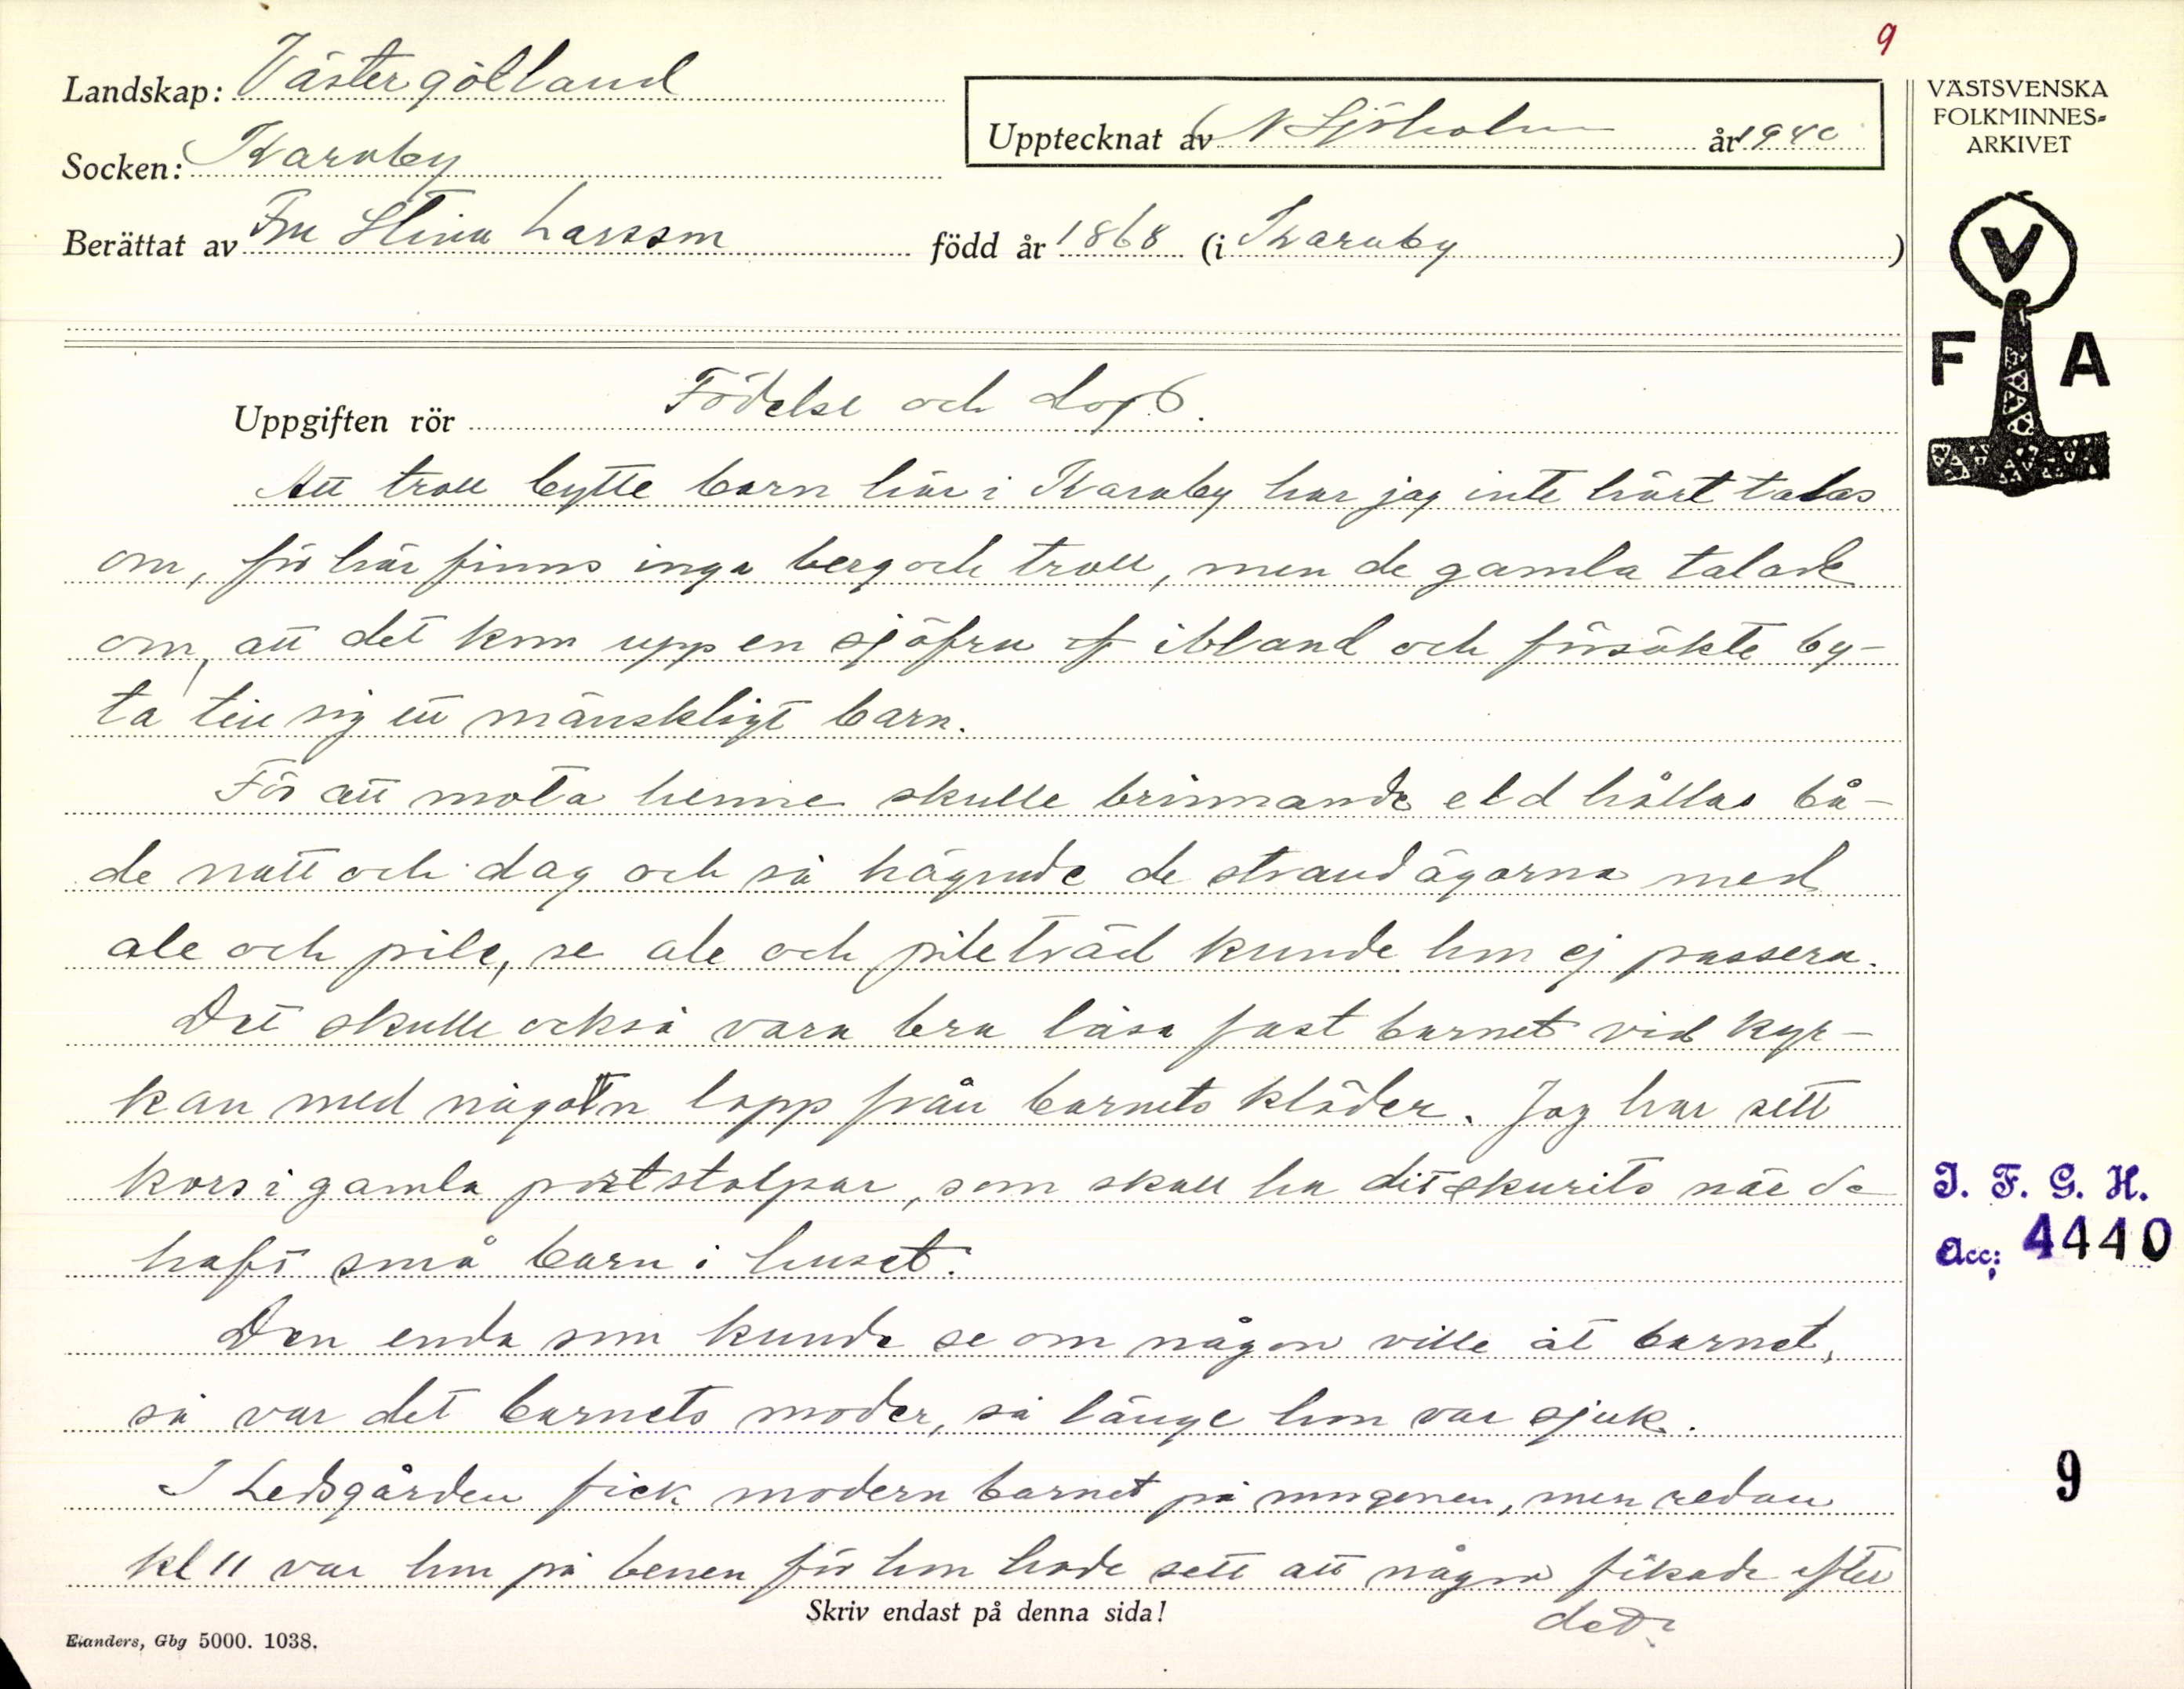 9
Landskap: Västergötland
Upptecknat av N Sjöholm år 1940
VÄSTSVENSKA
FOLKMINNES-
ARKIVET
Socken: Kareby
Berättat av Fru Stina Larsson född år 1868 (i Kareby)
V
F A
Uppgiften rör Födelse och dop.
Att troll bytte barn här i Kareby har jag inte hört talas
om, för här finns inga berg och troll, men de gamla talade
om, att det kom upp en sjöfru ibland och försökte by-
ta till sig ett mänskligt barn.
För att mota henne skulle brinnande eld hållas bå-
de natt och dag och så hägnade de strandägorna med
ale och pile, se ale och pileträd kunde hon ej passera.
Det skulle också vara bra läsa fast barnet vid kyr-
kan med någon lapp från barnets kläder. Jag har sett
kors i gamla portstolpar, som skall ha ditskurits när de
haft små barn i huset.
Den enda som kunde se om någon ville åt barnet,
så var det barnets moder, så länge hon var sjuk.
I Ledsgården fick modern barnet på morgonen, men redan
kl 11 var hon på benen för hon hade sett att någon fikade efter
det.
Skriv endast på denna sida!
Elanders, Gbg 5000. 1038.
I. F. G. H.
Acc: 4440
9